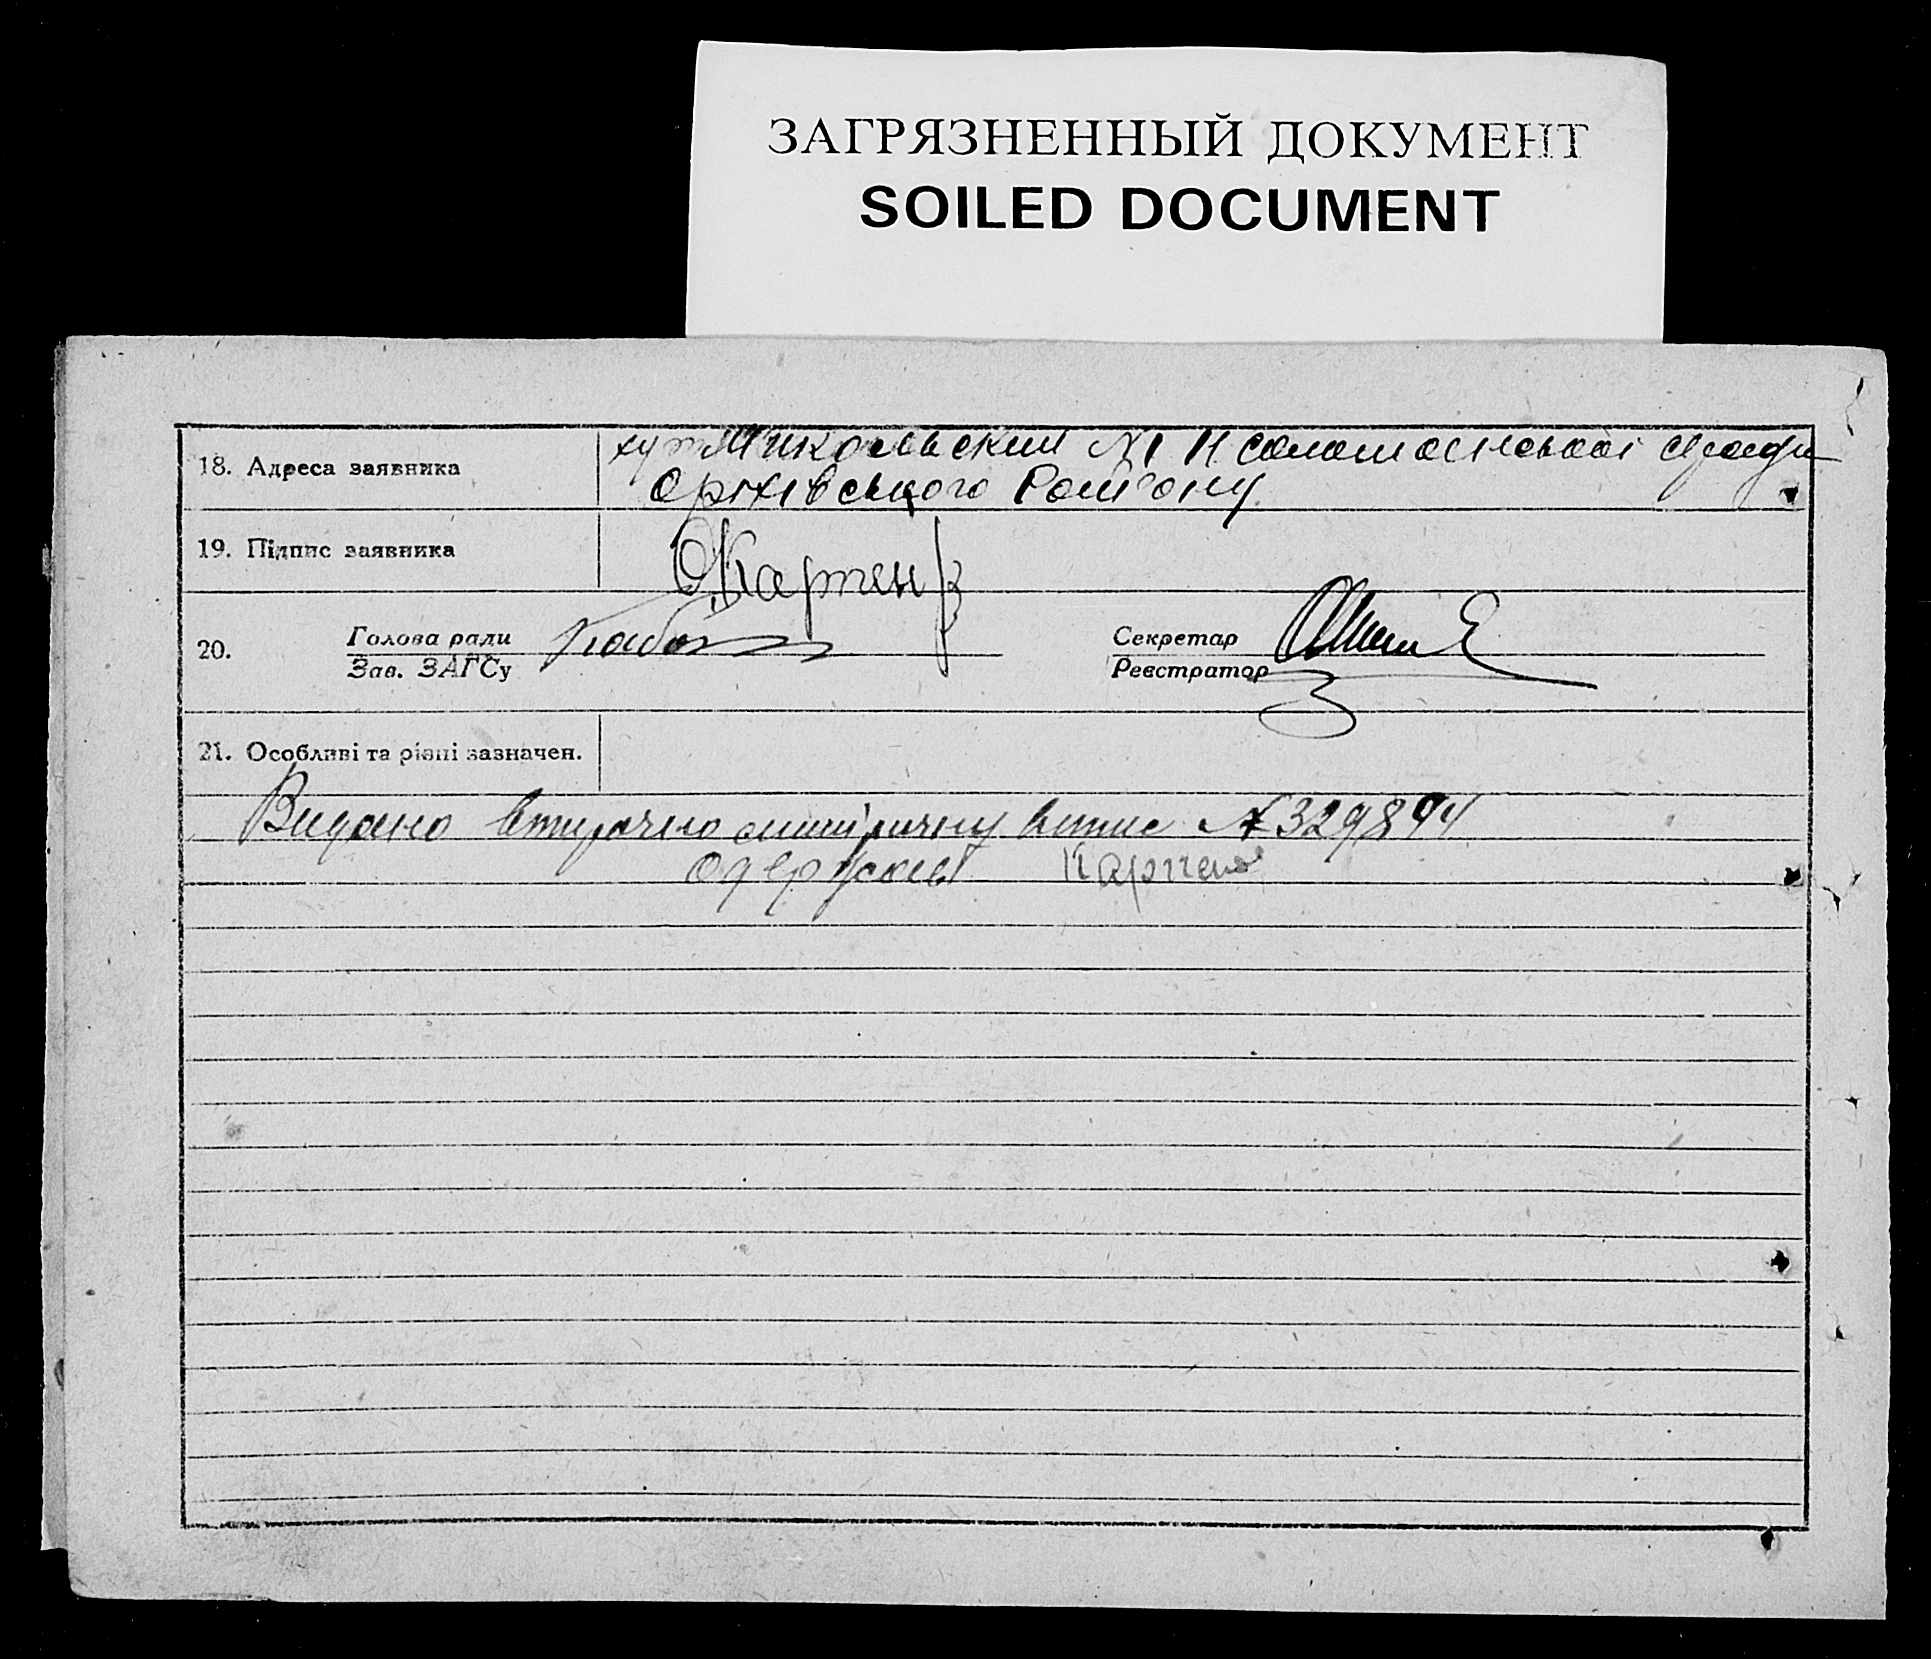 ЗАГРЯЗНЕННЫЙ ДОКУМЕНТ
SOILED DOCUMENT
18. Адреса заявника
хут Микольский №1 сради
Оріхівського Району
19. Підпис заявника
20. Голова ради
Зав. ЗАГСу
Секретар
Реєстратор
21. Особливі та різні зазначен.
Видано вторично випис № 329894
одержав